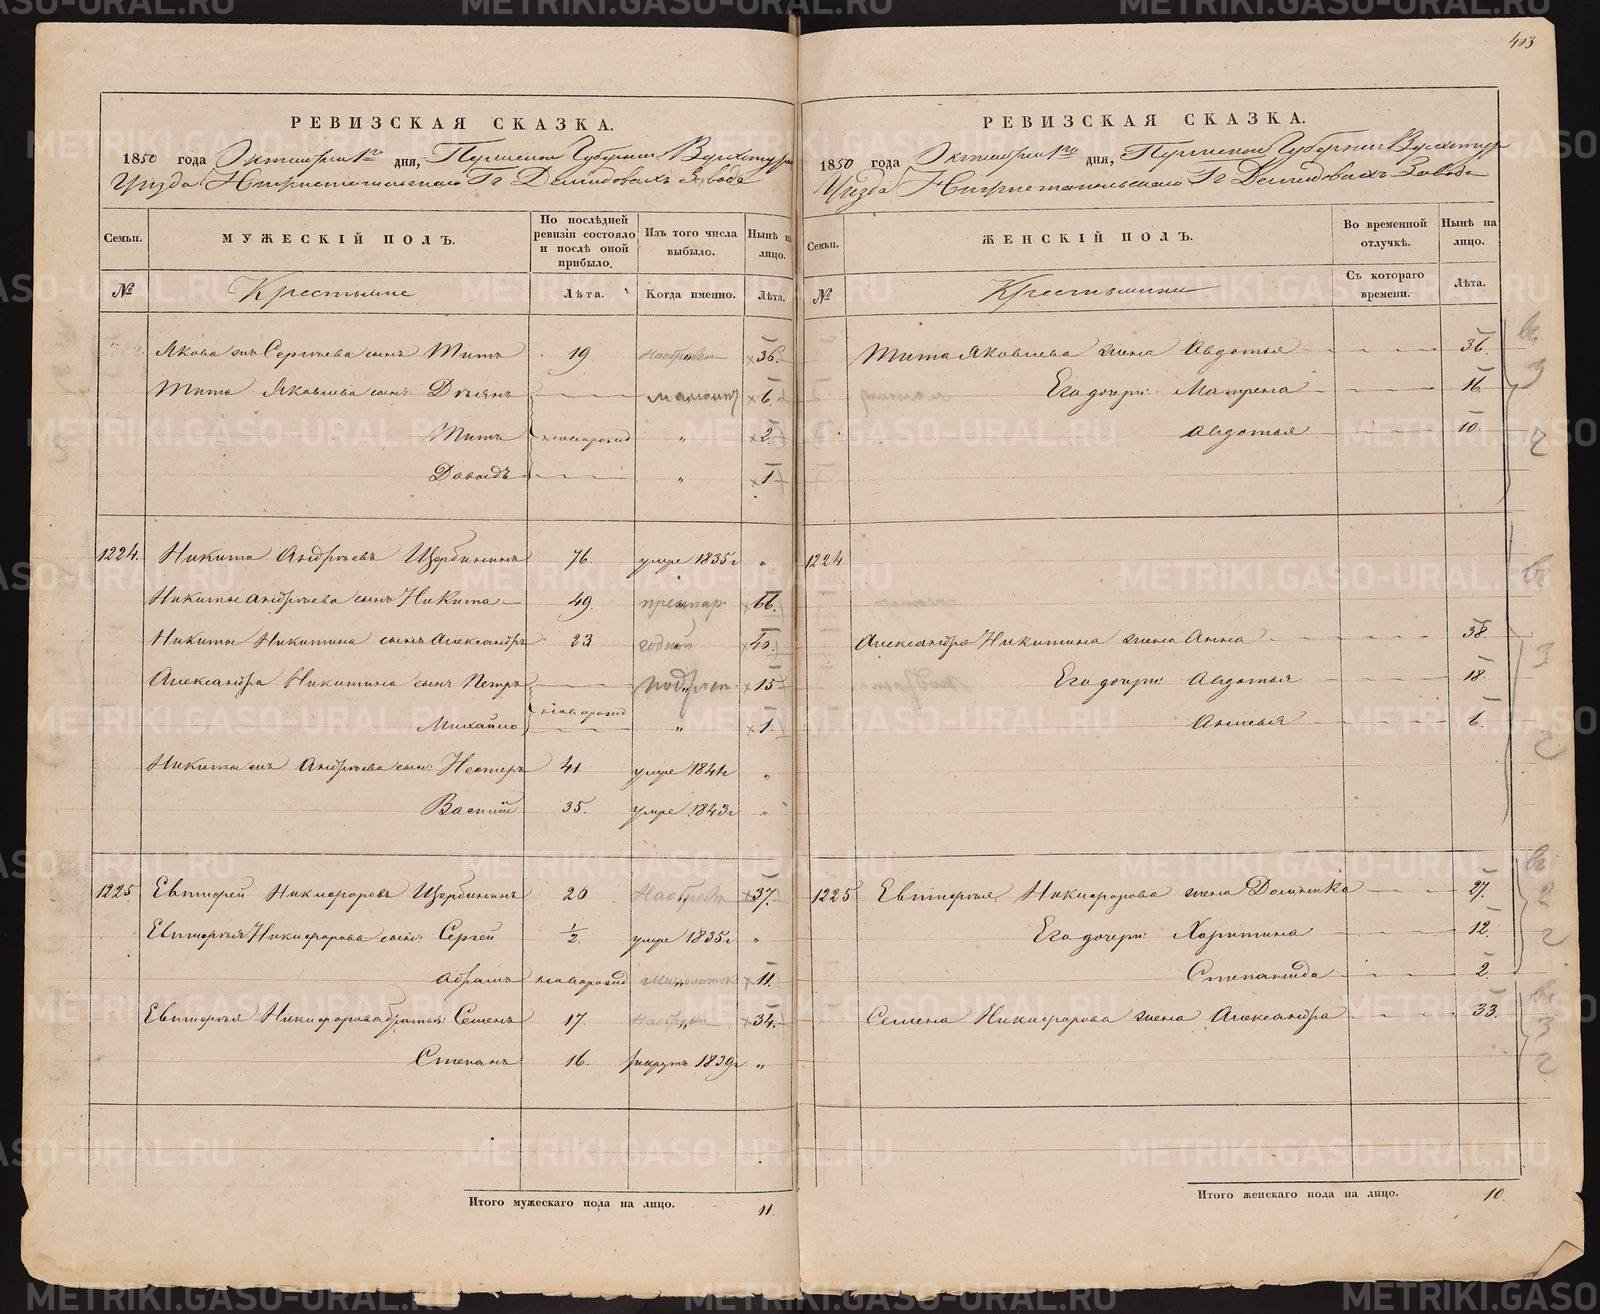 403
РЕВИЗСКАЯ СКАЗКА.
1850 года Октября 1го дня, Пермской Губернии Верхотур
Уезда Гг Демидовыхъ Завода
Семьи. МУЖЕСКІЙ ПОЛЪ. По послѣдней ревизіи состояло и послѣ оной прибыло. Изъ того числа выбыло. Нынѣ на лицо.
№ Крестьяне Лѣта. Когда именно. Лѣта.
Якова Сергѣева сынъ Титъ 19. 36.
Тита Яковлева сын: Демьянъ 6.
Титъ новорожд „ 2.
Давыдъ „ 1.
1224. Никита Андрѣевъ Щербининъ 76. умре 1835г „
Никиты Андрѣева сынъ Никита 49. 66.
Никиты Никитина сынъ Александръ 23 годной 40.
Александра Никитина сынъ Петръ 15
Михайло новорожд „ 1.
Никиты Андрѣева сын: Нестеръ 41 умре 1841г „
Василій 35. умре 1843г „
1225 Евтифей Никифоровъ Щербининъ 20 37.
Евтифья Никифорова сын: Сергей 1/2. умре 1835г „
Абрамъ новорожд 11.
Евтифья Никифорова братья: Семенъ 17. 34.
Степанъ 16. рекрутъ 1839г „
Итого мужескаго пола на лицо. 11.
РЕВИЗСКАЯ СКАЗКА.
1850 года Октября 1го дня, Пермской Губернии Верхотур
Уезда Гг Демидовыхъ Завода
Семьи. ЖЕНСКІЙ ПОЛЪ. Во временной отлучкѣ. Нынѣ на лицо.
№ Крестьянки Съ котораго времени. Лѣта.
Тита Яковлева жена Авдотья 36.
Его дочери: Матрена 16
Авдотья 10.
1224
Александра Никитина жена Анна 38
Его дочери: Авдотья 18.
Анисья 6.
1225 Евтифья Никифорова жена Домника 27.
Его дочери: Харитина 12.
Степанида 2.
Семена Никифорова жена Александра 33.
Итого женскаго пола на лицо. 10.
METRIKI.GASO-URAL.RU